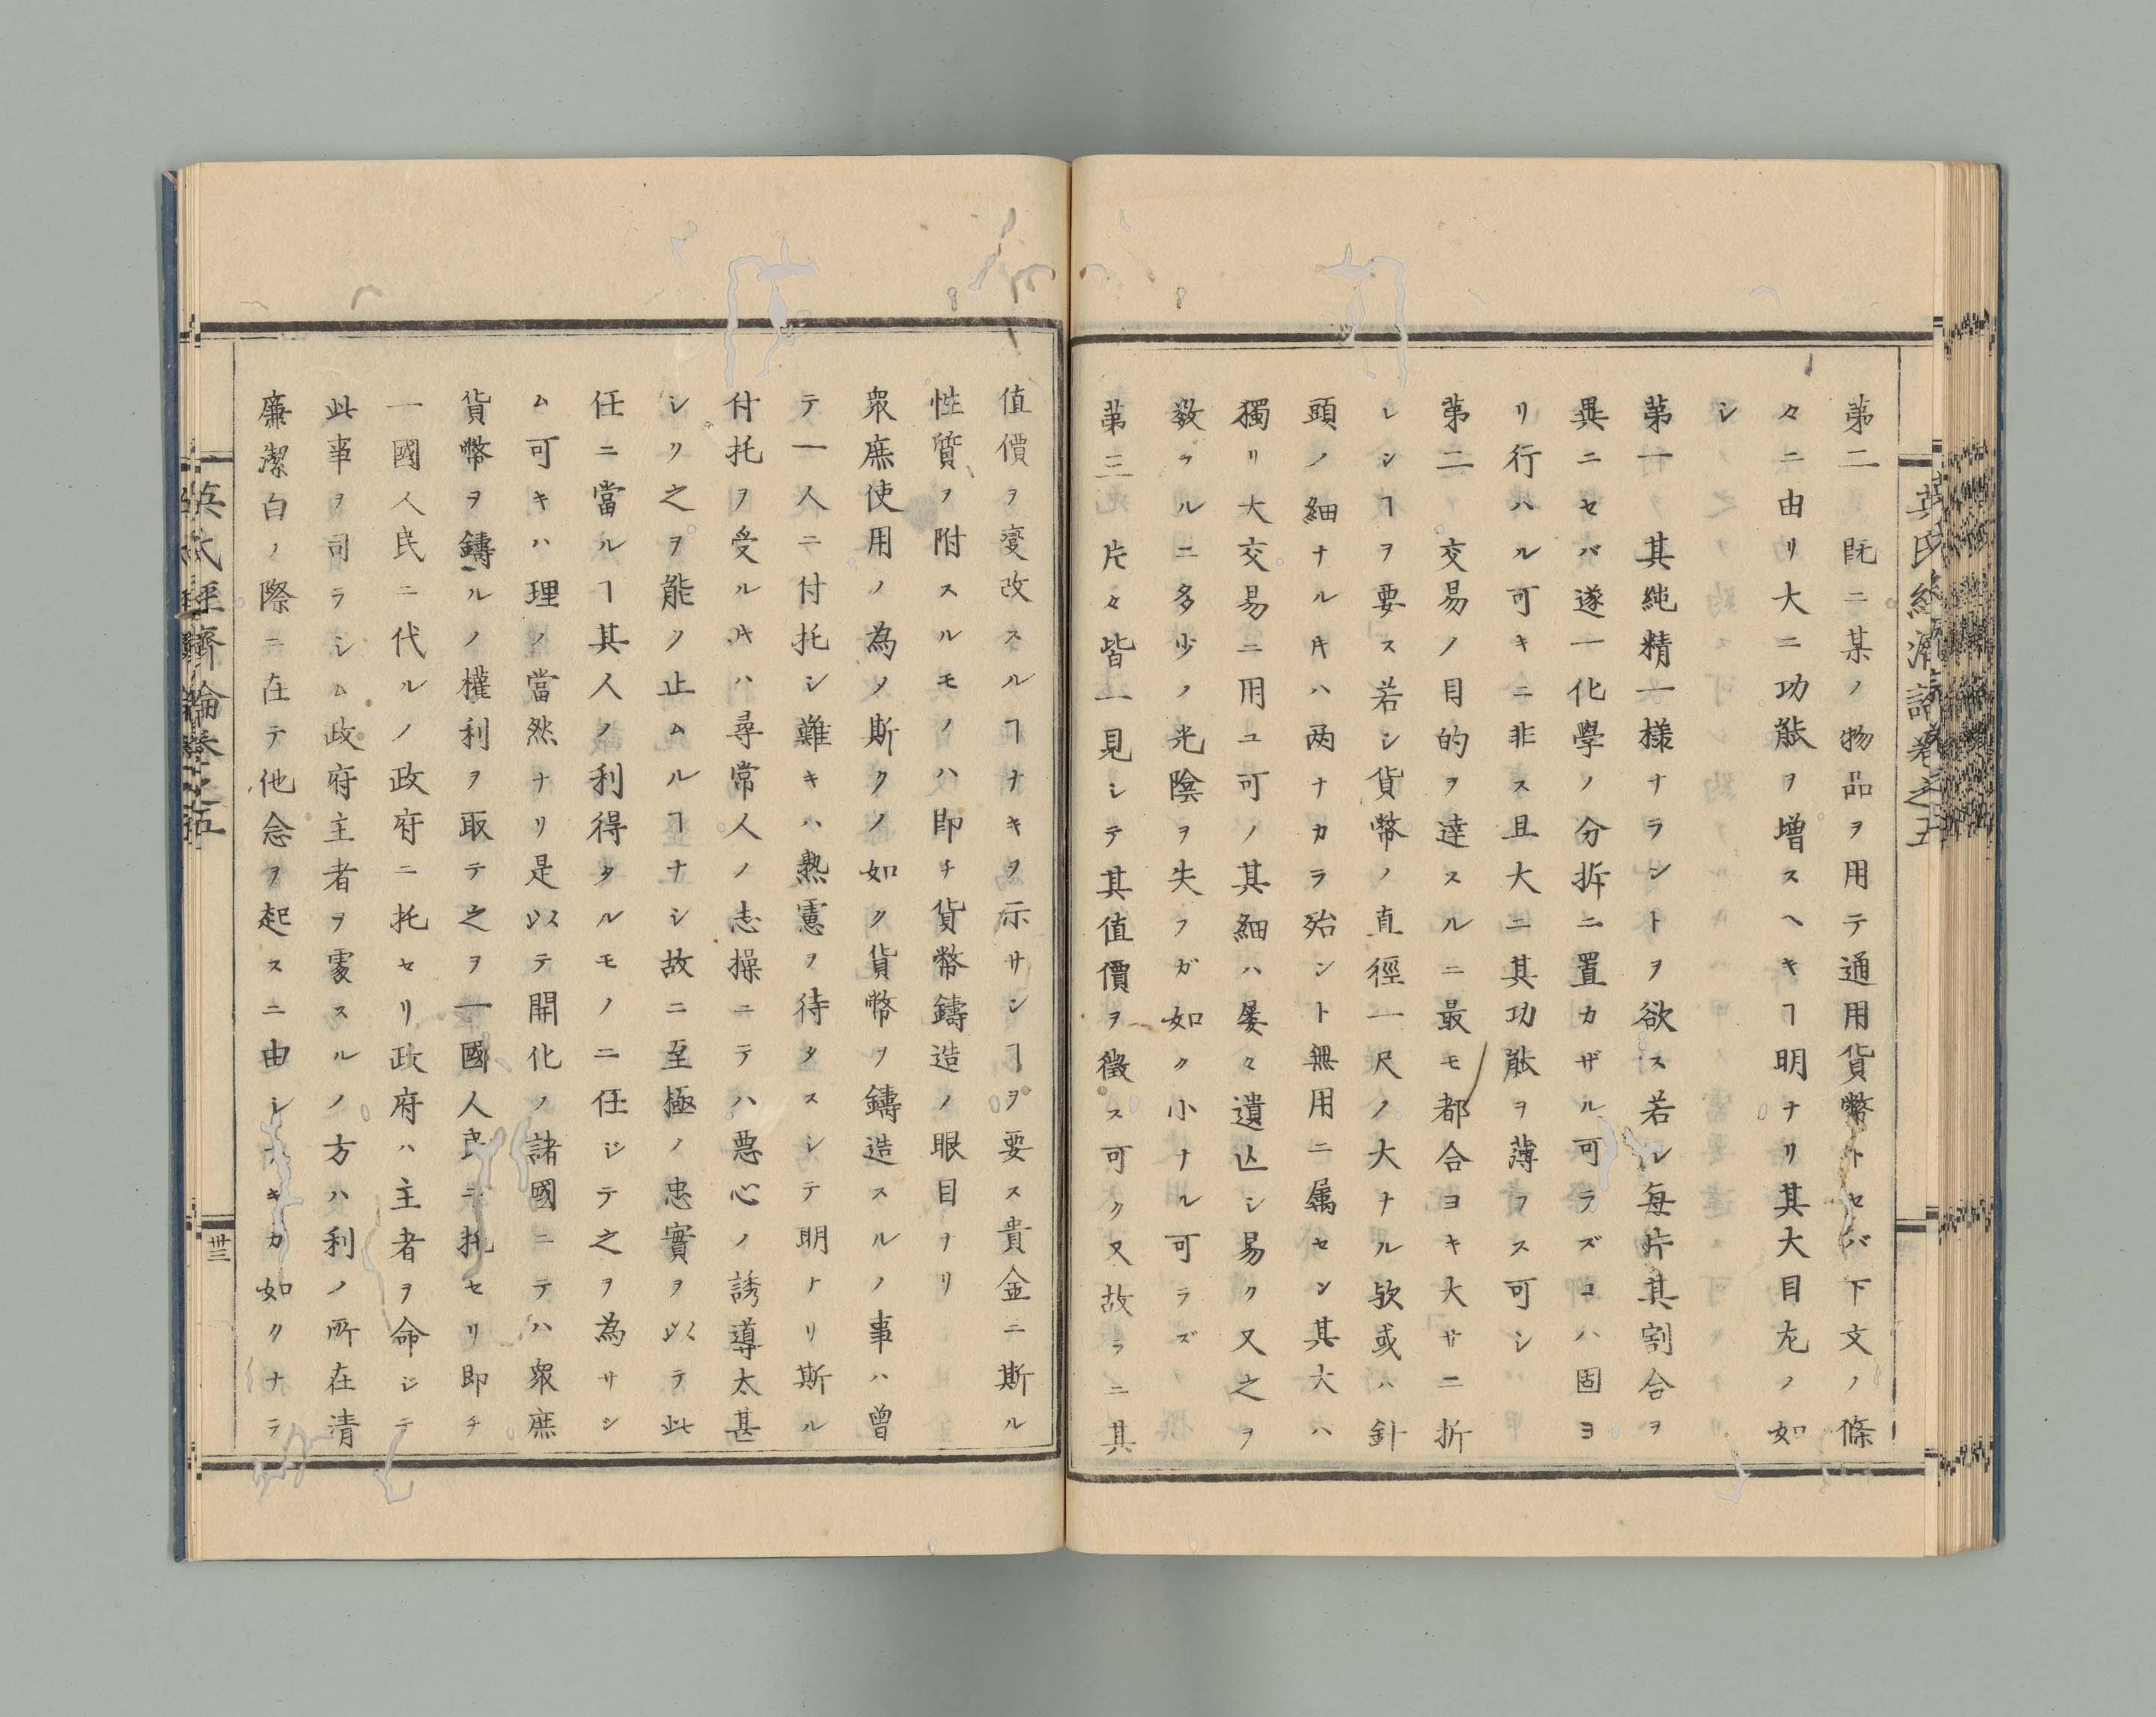 英氏經濟論卷之五
第二　既ニ某ノ物品ヲ用テ通用貨幣トセバ下文ノ條
々ニ由リ大ニ功䏻ヲ増スヘキヿ明ナリ其大目左ノ如
シ
第一　其純精一様ナランヿヲ欲ス若シ毎片其割合ヲ
異ニセバ遂一化學ノ分拆ニ置カザル可ラズコハ固ヨ
リ行ハル可キニ非ス且大ニ其功䏻ヲ薄フス可シ
第二　交易ノ目的ヲ達スルニ最モ都合ヨキ大サニ折
レシヿヲ要ス若シ貨幣ノ直徑一尺ノ大ナル欤或ハ針
頭ノ細ナルキハ两ナカラ殆ント無用ニ属セン其大ハ
獨リ大交易ニ用ユ可ノ其細ハ屡々遺亾シ易ク又之ヲ
数フルニ多少ノ光陰ヲ失フガ如ク小ナル可ラズ
第三　片々皆一見シテ其値價ヲ徴ス可ク又故ラニ其
値價ヲ変改スルヿナキヲ示サンヿヲ要ス貴金ニ斯ル
性質ヲ附スルモノハ即チ貨幣鑄造ノ眼目ナリ
衆庶使用ノ為メ斯クノ如ク貨幣ヲ鑄造スルノ事ハ曽
テ一人ニ付托シ難キハ熟慮ヲ待タスシテ明ナリ斯ル
付托ヲ受ルキハ尋常人ノ志操ニテハ悪心ノ誘導太甚
シク之ヲ能ク止ムルヿナシ故ニ至極ノ忠實ヲ以テ此
任ニ當ルヿ其人ノ利得タルモノニ任ジテ之ヲ為サシ
ム可キハ理ノ當然ナリ是以テ開化ノ諸國ニテハ衆庶
貨幣ヲ鑄ルノ權利ヲ取テ之ヲ一國人民ニ托セリ即チ
一國人民ニ代ルノ政府ニ托セリ政府ハ主者ヲ命ジテ
此事ヲ司ラシム政府主者ヲ䖏スルノ方ハ利ノ所在清
廉潔白ノ際ニ在テ他念ヲ起スニ由シナキカ如クナラ
英氏經濟論卷之五
卅三